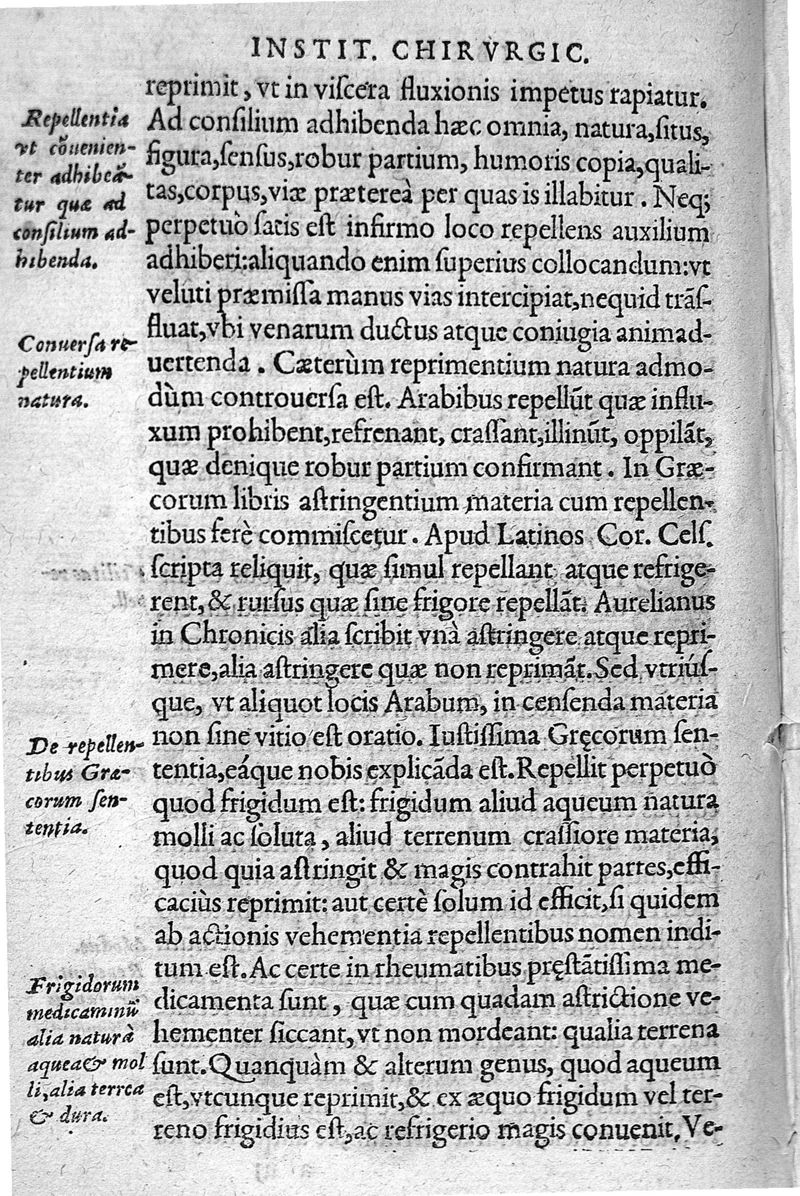 INSTIT. CHIRVRGIC.
reprimit, vt in viſcera fluxionis impetus rapiatur.
Ad conſilium adhibenda hæc omnia, natura, ſitus,
figura, ſenſus, robur partium, humoris copia, quali-
tas, corpus, viæ prætereà per quas is illabitur. Neq;
perpetuò ſatis eſt infirmo loco repellens auxilium
adhiberi: aliquando enim ſuperius collocandum: vt
veluti præmiſſa manus vias intercipiat, nequid trãſ-
fluat, vbi venarum ductus atque coniugia animad-
uertenda. Cæterùm reprimentium natura admo-
dùm controuerſa eſt. Arabibus repellũt quæ influ-
xum prohibent, refrenant, craſſant, illinũt, oppilãt,
quæ denique robur partium confirmant. In Græ-
corum libris aſtringentium materia cum repellen-
tibus ferè commiſcetur. Apud Latinos Cor. Celſ.
ſcripta reliquit, quæ ſimul repellant atque refrige-
rent, & rurſus quæ ſine frigore repellãt. Aurelianus
in Chronicis alia ſcribit vnà aſtringere atque repri-
mere, alia aſtringere quæ non reprimãt. Sed vtriúſ-
que, vt aliquot locis Arabum, in cenſenda materia
non ſine vitio eſt oratio. Iuſtiſſima Gręcorum ſen-
tentia, eáque nobis explicãda eſt. Repellit perpetuò
quod frigidum eſt: frigidum aliud aqueum natura
molli ac ſoluta, aliud terrenum craſſiore materia,
quod quia aſtringit & magis contrahit partes, effi-
caciùs reprimit: aut certè ſolum id efficit, ſi quidem
ab actionis vehementia repellentibus nomen indi-
tum eſt. Ac certe in rheumatibus pręſtãtiſſima me-
dicamenta ſunt, quæ cum quadam aſtrictione ve-
hementer ſiccant, vt non mordeant: qualia terrena
ſunt. Quanquàm & alterum genus, quod aqueum
eſt, vtcunque reprimit, & ex æquo frigidum vel ter-
reno frigidius eſt, ac refrigerio magis conuenit. Ve-
Repellentia
vt cõuenien-
ter adhibeã-
tur quæ ad
conſilium ad-
hibenda.
Conuerſa re-
pellentium
natura.
De repellen-
tibus Græ-
corum ſen-
tentia.
Frigidorum
medicaminũ
alia naturà
aquea & mol
li, alia terrea
& dura.